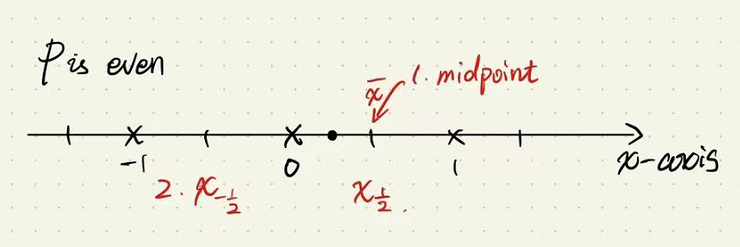 P is even
x̄ 1. midpoint
-1 0 1 x-axis
2. x₋½ x½.